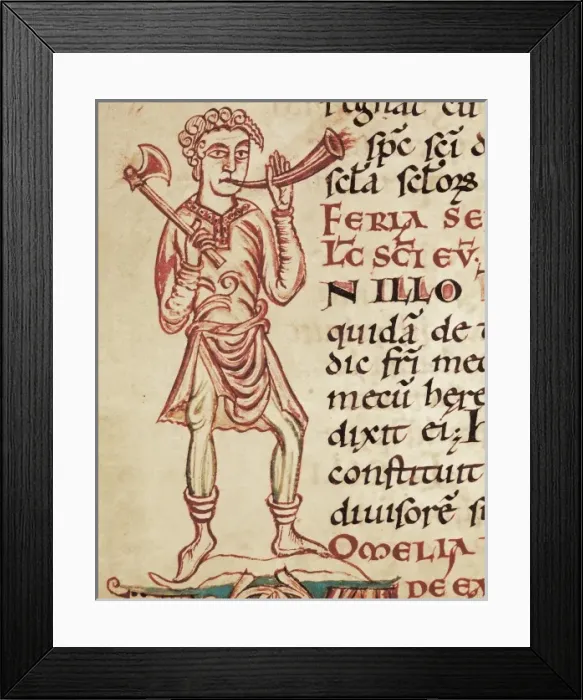 sp̄c sc̄i d
sc̄la sc̄lorꝫ
FERIA SE
LC̄ SC̄I EV.
N ILLO
quidā de
dic fr̄i mec
mecū here
dixit ei;
constituit
diuisorē s
OMELIA
DE EA